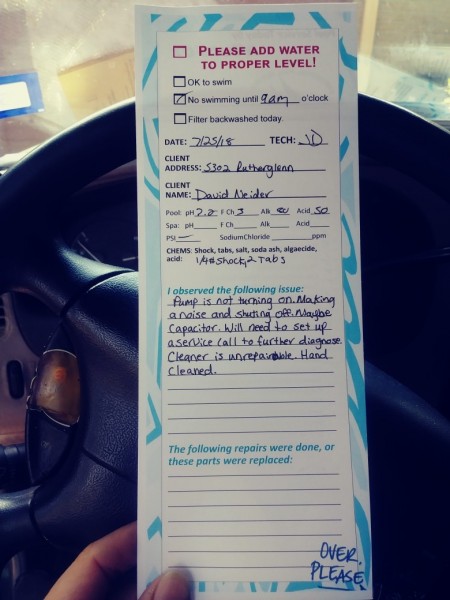 PLEASE ADD WATER
TO PROPER LEVEL!
OK to swim
No swimming until 9am o'clock
Filter backwashed today.
DATE: 7/25/18 TECH: JD
CLIENT
ADDRESS: 5302 Rutherglenn
CLIENT
NAME: David Neider
Pool: pH F Ch 3 Alk 80 Acid 50
Spa: pH F Ch Alk Acid
PSI — Sodium Chloride ppm
CHEMS: Shock, tabs, salt, soda ash, algaecide,
acid: 1/4# Shock, 2 Tabs
I observed the following issue:
Pump is not turning on. Making
a noise and shuting off. Maybe
Capacitor. Will need to set up
a service call to further diagnose.
Cleaner is unrepairable. Hand
Cleaned.
The following repairs were done, or
these parts were replaced:
OVER,
PLEASE